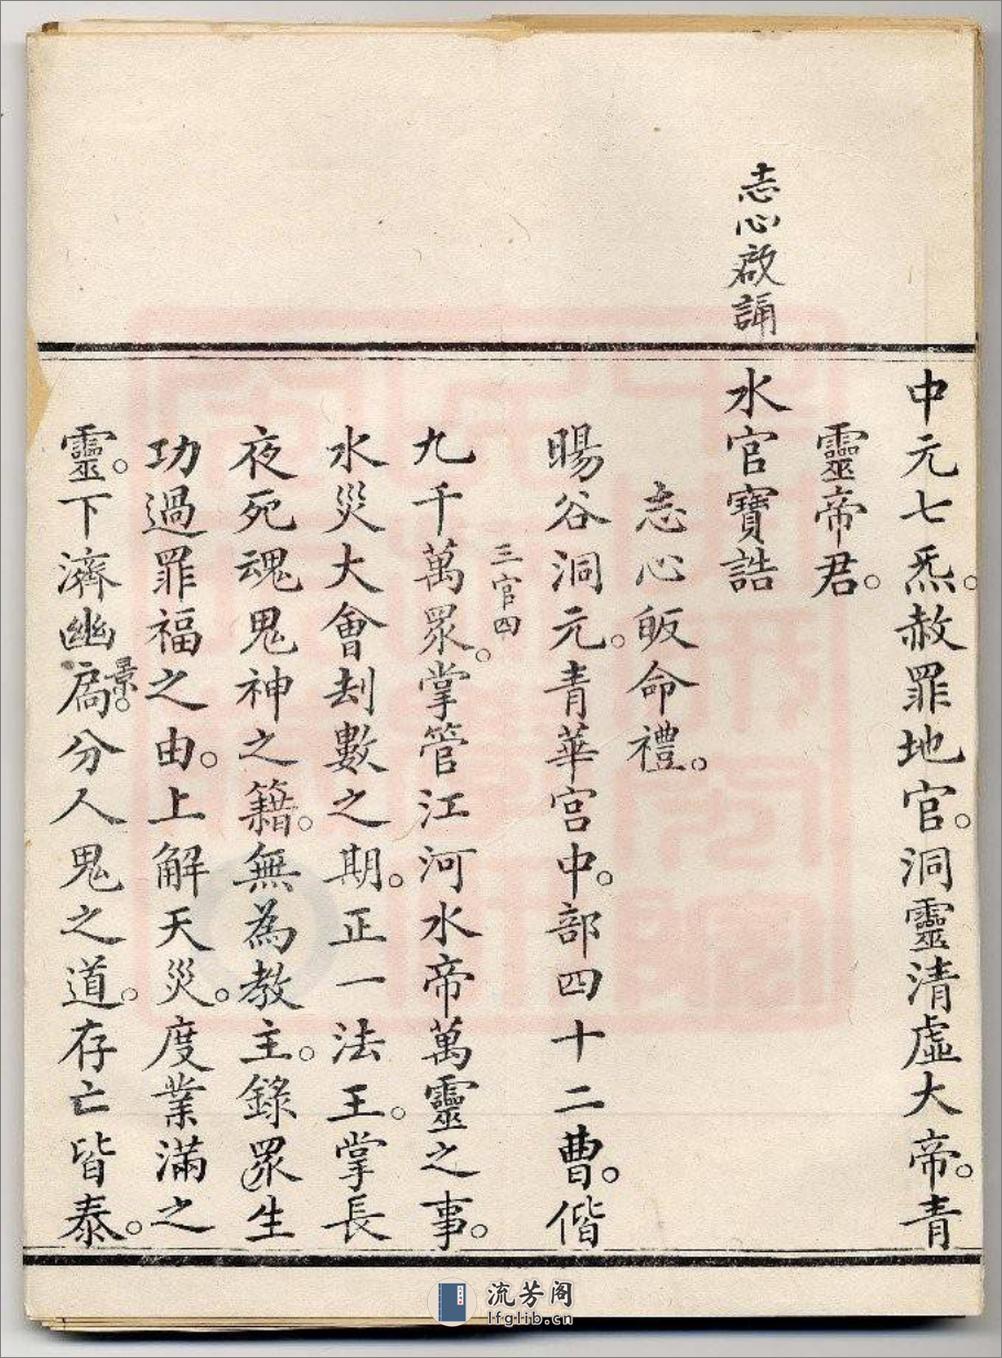 中元七炁。赦罪地官。洞靈清虛大帝。青
靈帝君。
志心啟誦
水官寶誥
志心皈命禮。
暘谷洞元。青華宮中。部四十二曹。偕
三官四
九千萬眾。掌管江河水帝萬靈之事。
水災大會刦數之期。正一法王。掌長
夜死魂鬼神之籍。無為教主。錄眾生
功過罪福之由。上解天災。度業滿之
靈。下濟幽扃。分人鬼之道。存亡皆泰。
景。
流芳阁
lfglib.cn